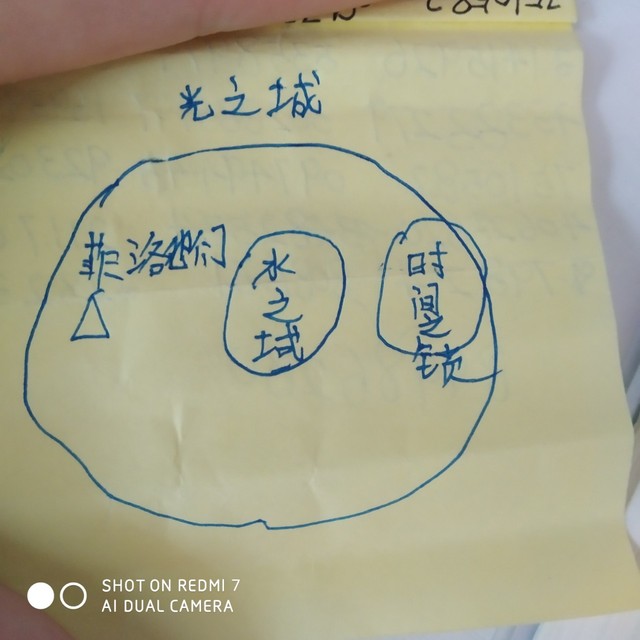 光之域
菲洛他们
水之域
时间之锁
SHOT ON REDMI 7
AI DUAL CAMERA